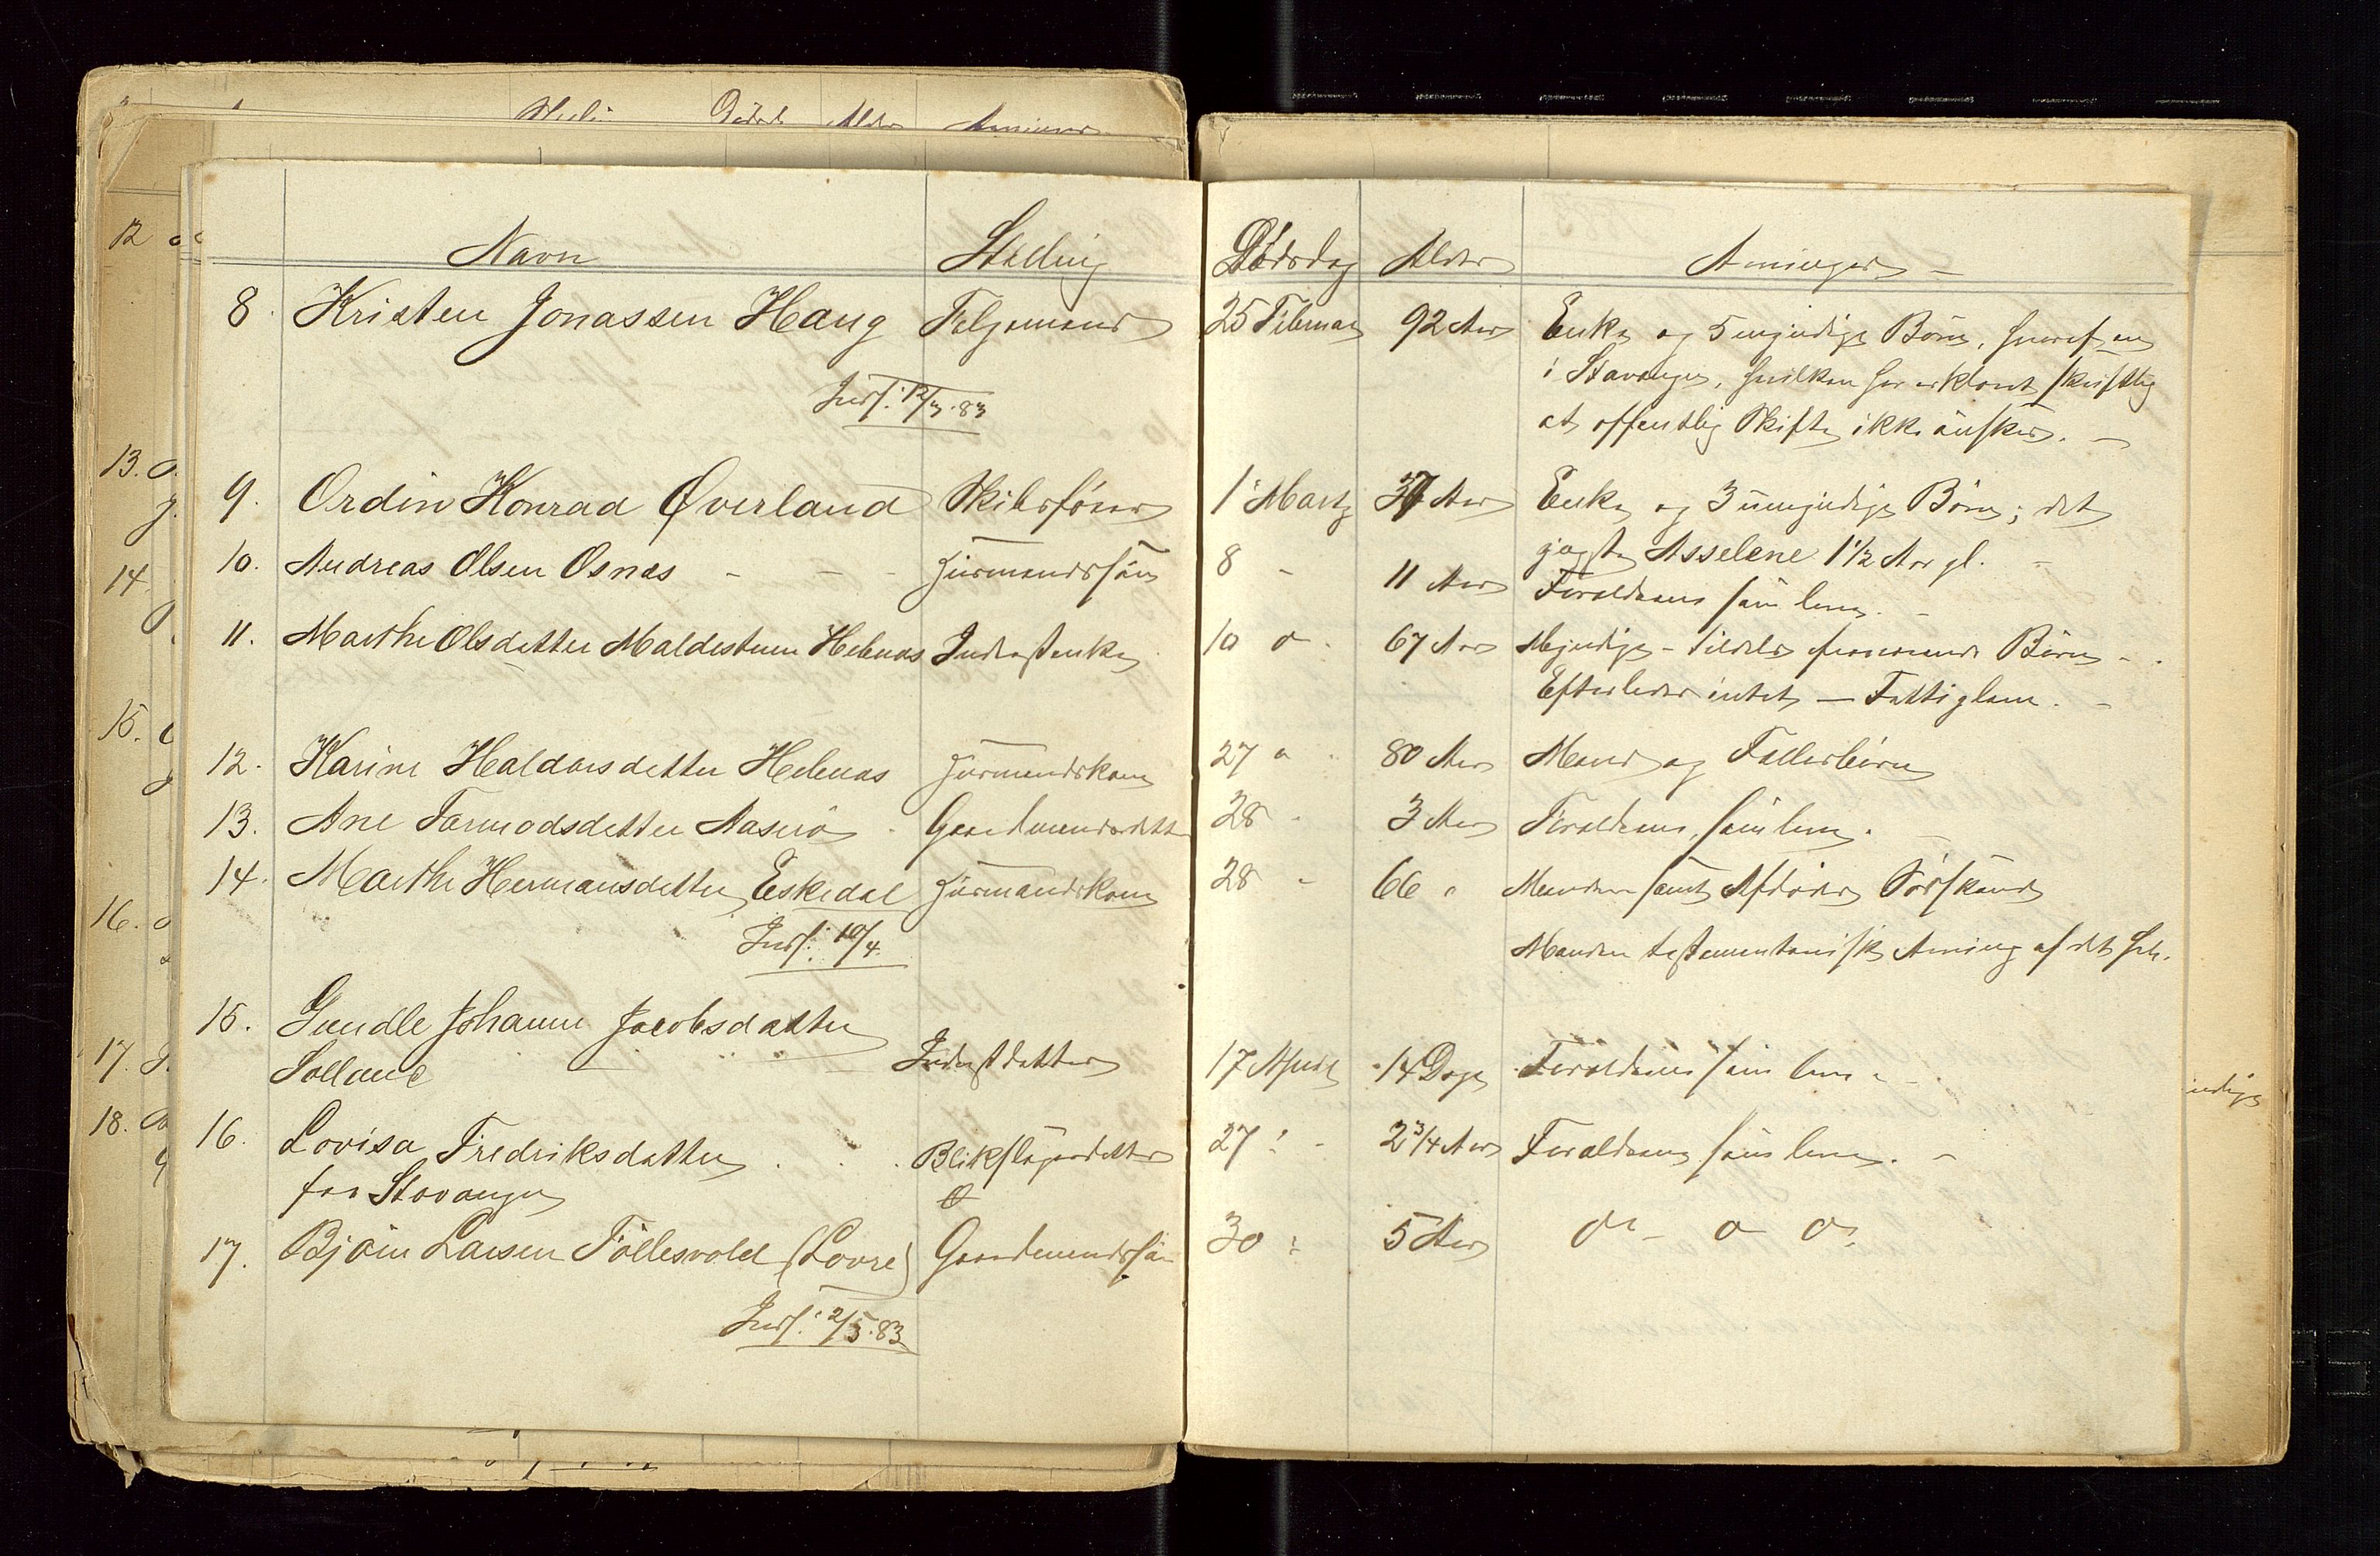 Navn Stilling Dødsdag Alder Arvinger
8. Kristen Jonassen Haug Følgemand 25 Februar 92 Aar Enke og 5 myndige Børn, hvoraf en
i Stavanger, hvilken har erklæret skriftlig
at offentlig Skifte ikke ønskes.
Indf: 12/3.83
9. Ordin Konrad Øverland Skibsfører 1 Marts 37 Aar Enke og 3 umyndige Børn; det
yngste Asselene 1 1/2 Aar gl.
10. Andreas Olsen Osnes Huusmandssøn 8 - 11 Aar Forældrene som leve.
11. Marthe Olsdatter Maldestuen Hebnes Inderstenke 10 67 Aar Myndige - tildels fraværende Børn
Efterlader intet - Fattiglem.
12. Karine Haldorsdatter Hebnes Huusmandskone 27 80 Aar Mand og Fællesbørn
13. Ane Tormodsdatter Aaserø Gaardmandsdatt 28 3 Aar Forældrene, som leve.
14. Marthe Hermansdatter Eskedal Huusmandskone 28 66 Manden samt Afdødes Søskende
Manden testamentarisk Arving af det hele.
Indf: 10/4.
15. Gundle Johanne Jacobsdatter
Solland Inderstdatter 17 April 14 Dage Forældrene som leve
16. Lovisa Fredriksdatter Blikslagerdatter 27 2 3/4 Aar Forældrene som leve.
fra Stavanger
17. Bjørn Larsen Follesvold (Lovre) Gaardmandssøn 30 5 Aar
Indf: 2/5.83
12
13.
14
15.
16.
17.
18.